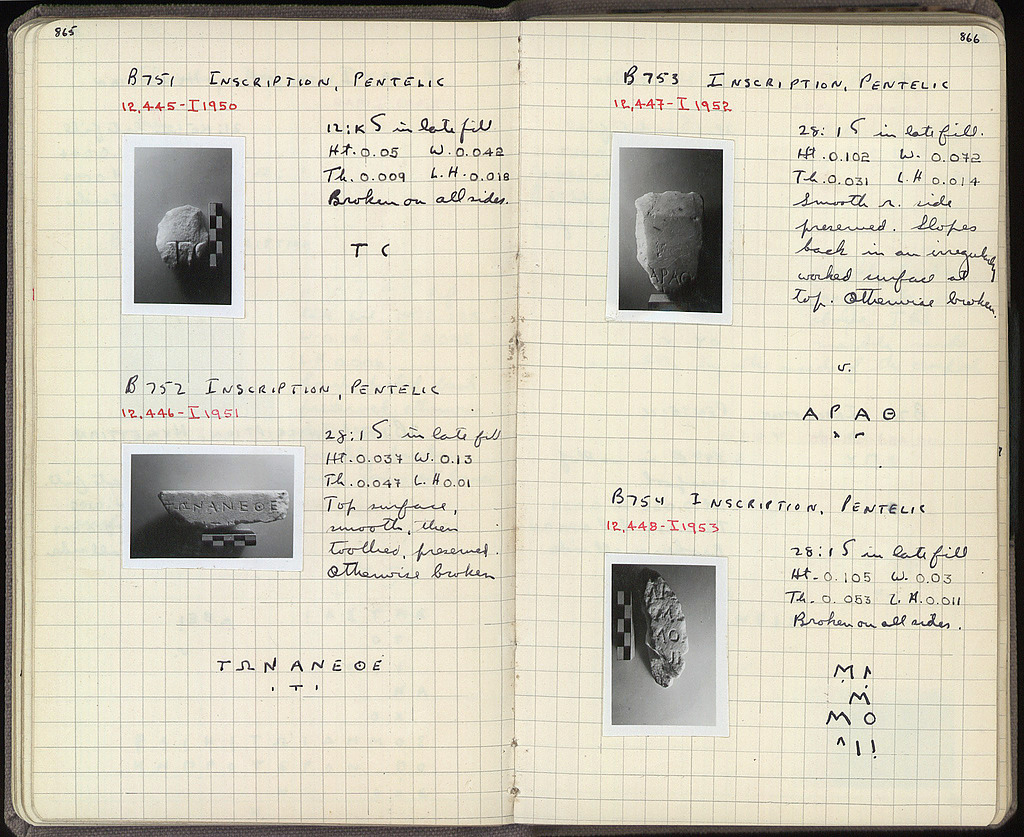 865
B751 INSCRIPTION, PENTELIC
12,445-I 1950
12:K S in late fill
Ht. 0.05 W. 0.042
Th. 0.009 L.H. 0.018
Broken on all sides.
Τ C
B 752 INSCRIPTION, PENTELIC
12,446-I 1951
28:15 in late fill
Ht. 0.037 W. 0.13
Th. 0.047 L.H 0.01
Top surface,
smooth, then
toothed, preserved.
Otherwise broken
ΤΩΝΑΝΕΘΕ
ΤΩΝ ΑΝΕΘΕ
Τ
866
B753 INSCRIPTION, PENTELIC
12,447-I 1952
28:15 in late fill.
Ht. 0.102 W. 0.072
Th. 0.031 L.H 0.014
Smooth r. side
preserved. Slopes
back in an irregularly
worked surface at
top. Otherwise broken.
ΑΡΑΘ
v.
Α Ρ Α Θ
B754 INSCRIPTION, PENTELIC
12,448-I 1953
28:15 in late fill
Ht. 0.105 W. 0.03
Th. 0.053 L.H. 0.011
Broken on all sides.
Μ Λ
Μ
Μ Ο